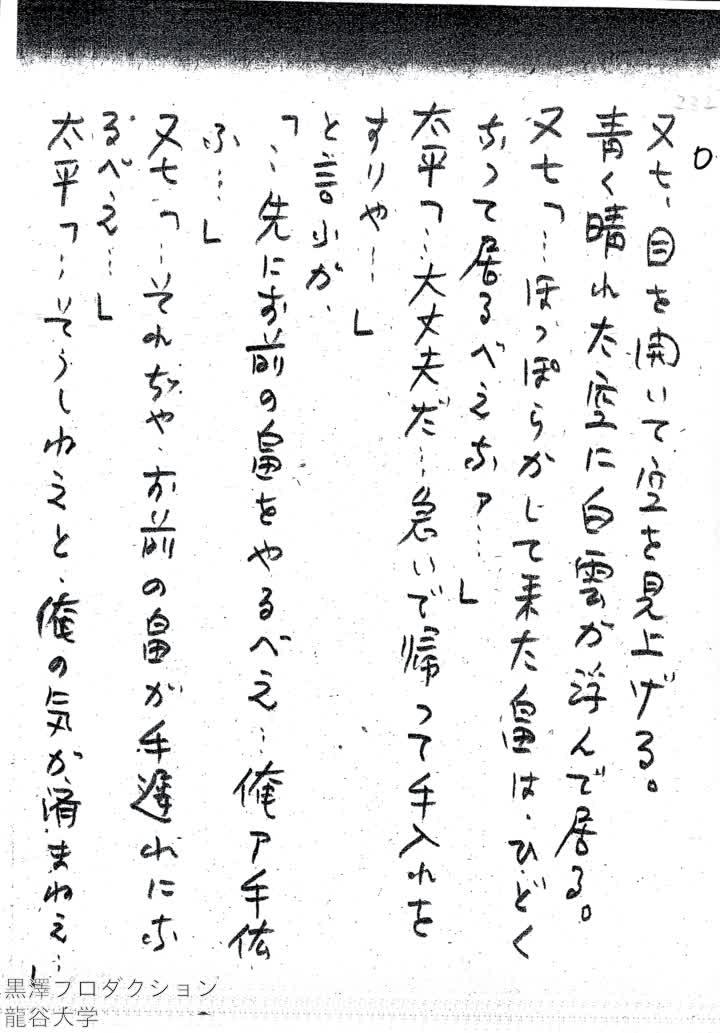 232
〇
又七、目を開いて空を見上げる。
青く晴れた空に白雲が浮んで居る。
又七「…ほっぽらかして来た畠は、ひどく
なって居るべえなァ…」
太平「…大丈夫だ…急いで帰って手入れを
すりゃ…」
と言うが、
「…先にお前の畠をやるべえ…俺ァ手伝
ふ…」
又七「…それぢゃ、お前の畠が手遅れにな
るべえ…」
太平「…そうしねえと、俺の気が済まねえ…」
黒澤プロダクション
龍谷大学